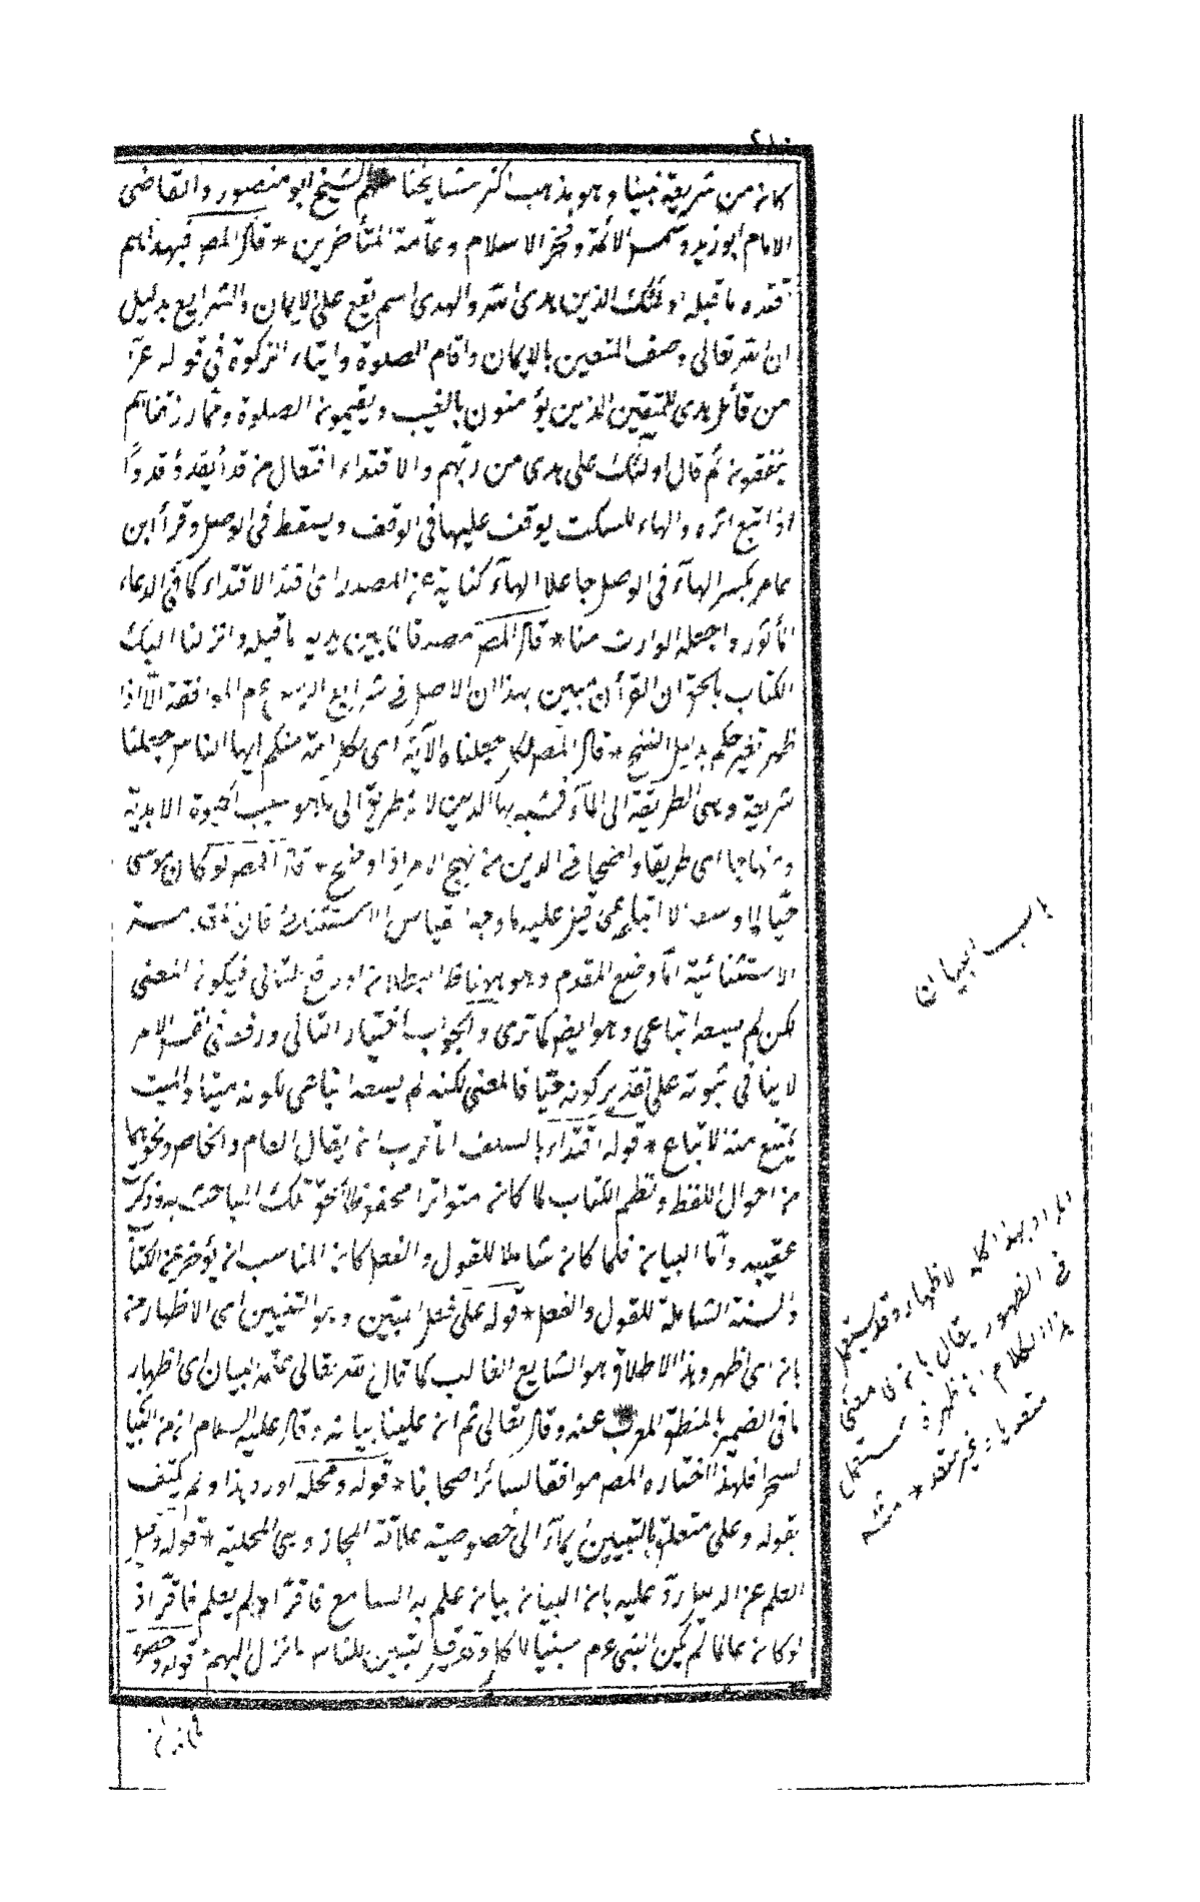 كانه من شريعة نبينا وهو مذهب اكثر مشايخنا منهم الشيخ ابو منصور والقاضى
الامام ابو زيد وشمس الائمة وفخر الاسلام وعامة المتأخرين * قال المص فبهداهم
اقتده ما قبله اولئك الذين هدى الله والهدى اسم يقع على الايمان والشرايع بدليل
ان الله تعالى وصف المتقين بالايمان واقام الصلوة وايتاء الزكوة فى قوله عزّ
من قائل هدى للمتقين الذين يؤمنون بالغيب ويقيمون الصلوة ومما رزقناهم
ينفقون ثم قال اولئك على هدى من ربّهم والاقتداء افتعال من قدا يقدو قدوًا
اذا تبع اثره والهاء للسكت يوقف عليها فى الوقف ويسقط فى الوصل وقرأ ابن
عامر بكسر الهآء فى الوصل جاعلا الهآء كناية عن المصدر اى اقتد الاقتداء كما فى الدعاء
المأثور واجعله الوارث منا * قال المص مصدقا لما بين يديه ما قبله وانزلنا اليك
الكتاب بالحق ان القرآن مبين بهذا ان الاصل فى شرايع الرسل عم الموافقة الّا اذا
ظهر تغير حكم بدليل النسخ * قال المص لكل جعلنا الآية اى لكل امة منكم ايها الناس جعلنا
شريعة وهى الطريقة الى المآء فشبه بها الدين لانه طريق الى ما هو سبب الحيوة الابدية
ومنهاجا اى طريقا واضحا فى الدين من نهج الامر اذا وضح * قال المص لو كان موسى
حيّا لما وسعه الا اتباعى قيل عليه ما وجه قياس الاستثنائى فان
الاستثنائية امّا وضع المقدم وهو هاهنا ظ البطلان او رفع التالى فيكون المعنى
لكن لم يسعه اتباعى وهو ايضا كما ترى والجواب اختيار الثانى ورفعه فى نفس الامر
لا ينافى ثبوته على تقدير كونه حيّا فالمعنى لكنه لم يسعه اتباعى لكونه ميتا والميت
يمتنع منه الاتباع * قوله اقتداء بالسلف الاقرب ان يقال العام والخاص ونحوهما
من احوال اللفظ ونظم الكتاب لما كان متواترا محفوظا الحق تلك المباحث به وذكر
عقيبه وأما البيان فلما كان شاملا للقول والفعل كان المناسب ان يؤخر عن الكتاب
والسنة الشاملة للقول والفعل * قوله على فعل المبين وهو التبيين اى الاظهار من
بان اى ظهر وهذا الاطلاق هو الشايع الغالب كما قال الله تعالى علّمه البيان اى اظهار
ما فى الضمير بالمنطق المعرب عنه وقال تعالى ثم ان علينا بيانه وقال عليه السلام ان من البيان
لسحرا فلهذا اختاره المص موافقا لسائر اصحابنا * قوله ومحله اورد هذا ولم يكتف
بقوله وعلى متعلق بالتبيين ايمآء الى خصوصية علاقة المجاز وهى المحلية * قوله وقيل
العلم عن الدليل ردّ عليه بان البيان بيان علم به السامع فاقرّ ام لم يعلم فاقرّ اذ
لو كان علما لم يكن النبى عم مبينا للكل وقد قيل لتبين للناس ما نزل اليهم * قوله وخصوا
باب البيان
المراد بهذا كله الاظهار وقد يستعمل
فى الظهور يقال بان فى معنى
هذا الكلام اى ظهر فيستعمل
متعديا وغير متعد * منه